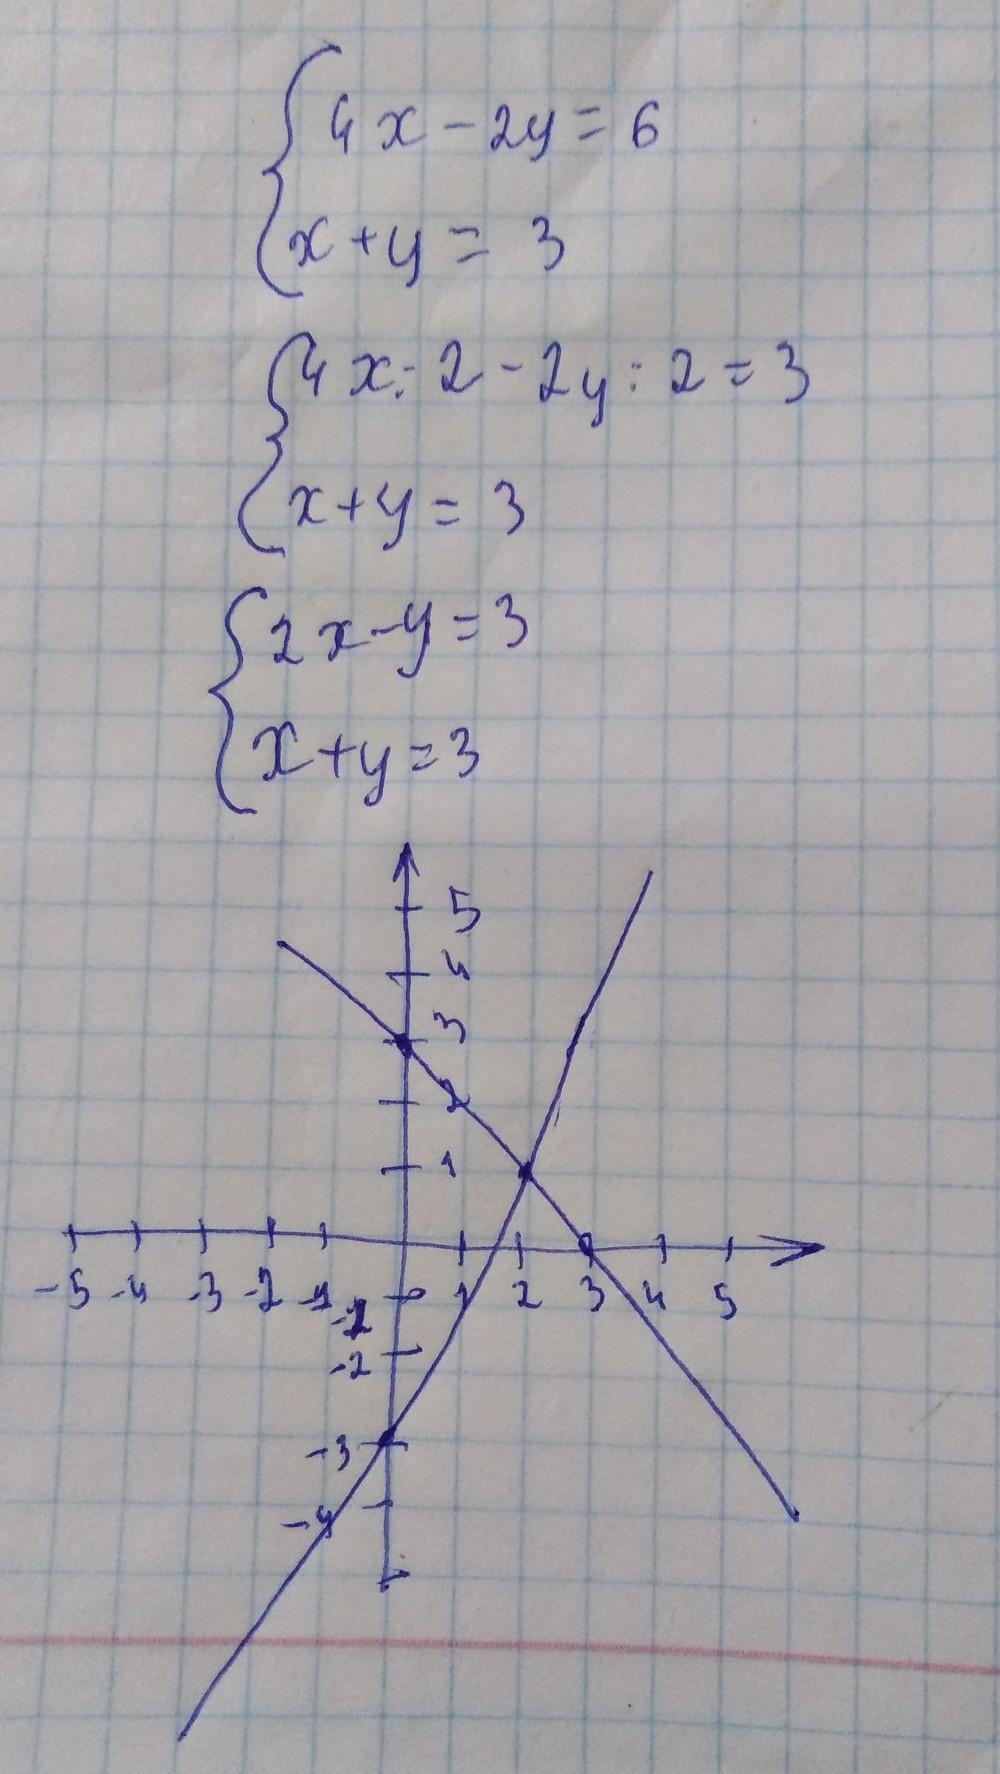 4x - 2y = 6
x + y = 3
4x : 2 - 2y : 2 = 3
x + y = 3
2x - y = 3
x + y = 3
5
4
3
2
1
-5 -4 -3 -2 -1 1 2 3 4 5
-1
-2
-3
-4